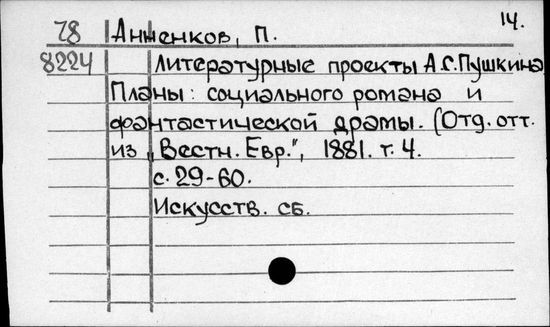 14.
78 Анненков, П.
8224 Литературные проекты А.С.Пушкина
Планы: социального романа и
фантастической драмы. (Отд. отт.
из „Вестн. Евр.", 1881. т. 4.
с. 29-60.
Искусств. сб.